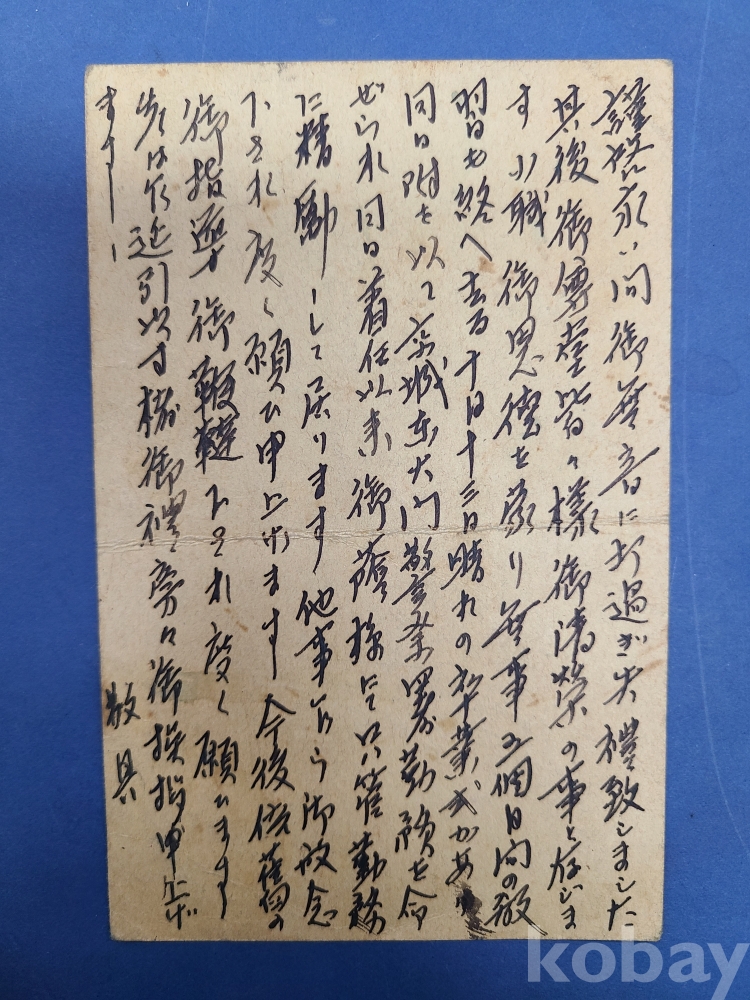 謹啓永い間御無音に打過ぎ失禮致しました
其後御尊堂皆々様御清栄の事と存じま
す 小職御恩徳を蒙り無事五個月間の教
習も終へ去る十月十三日晴れの卒業式があり
同日附を以て京城東大門警察署勤務を命
ぜられ同日着任以来御蔭様にて只管勤務
に精励して居ります 他事乍ら御放念
下され度く願ひ申上げます 今後倍舊の
御指導御鞭韃下され度く願ひます
先は乍延引以す様御禮旁々御挨拶申上げ
ます
敬具
kobay